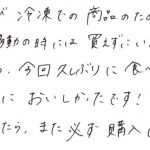 冷凍での商品のため
動の時には買えずにい
今回久しぶりに食べ
においしかったです!
たら、また必ず購入し